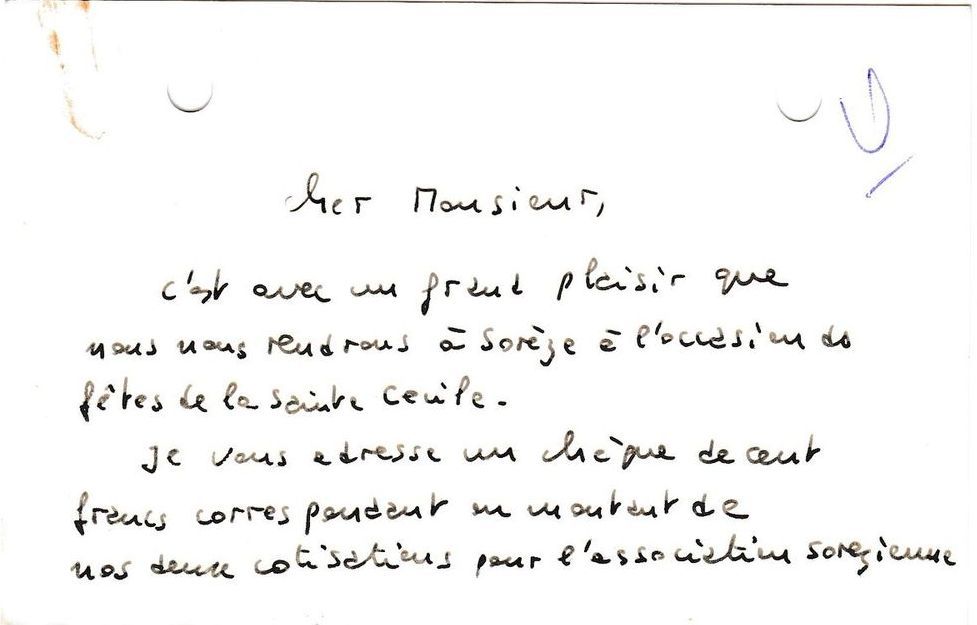 Cher Monsieur,
c'est avec un grand plaisir que
nous nous rendrons à Sorèze à l'occasion des
fêtes de la Sainte Cecile.
Je vous adresse un chèque de cent
francs correspondant au montant de
nos deux cotisations pour l'association sorezienne